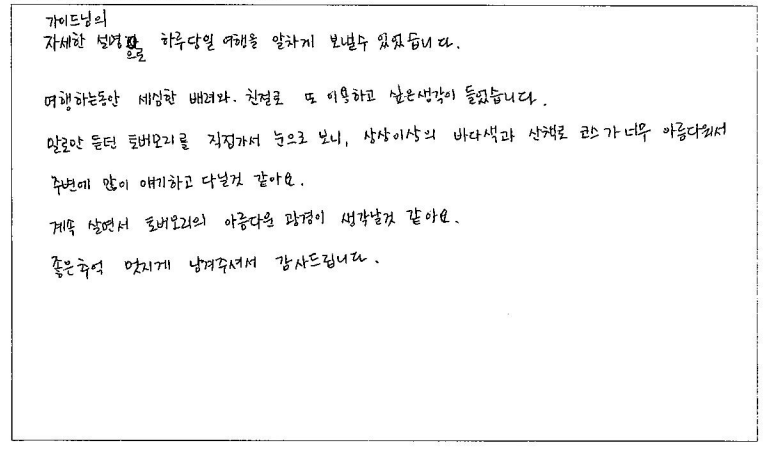 가이드님의
자세한 설명으로 하루당일 여행을 알차게 보낼수 있었습니다.
여행하는동안 세심한 배려와. 친절로 또 이용하고 싶은생각이 들었습니다.
말로만 듣던 토버모리를 직접가서 눈으로 보니, 상상이상의 바다색과 산책로 코스가 너무 아름다워서
주변에 많이 얘기하고 다닐것 같아요.
계속 살면서 토버모리의 아름다운 광경이 생각날것 같아요.
좋은추억 멋지게 남겨주셔서 감사드립니다.